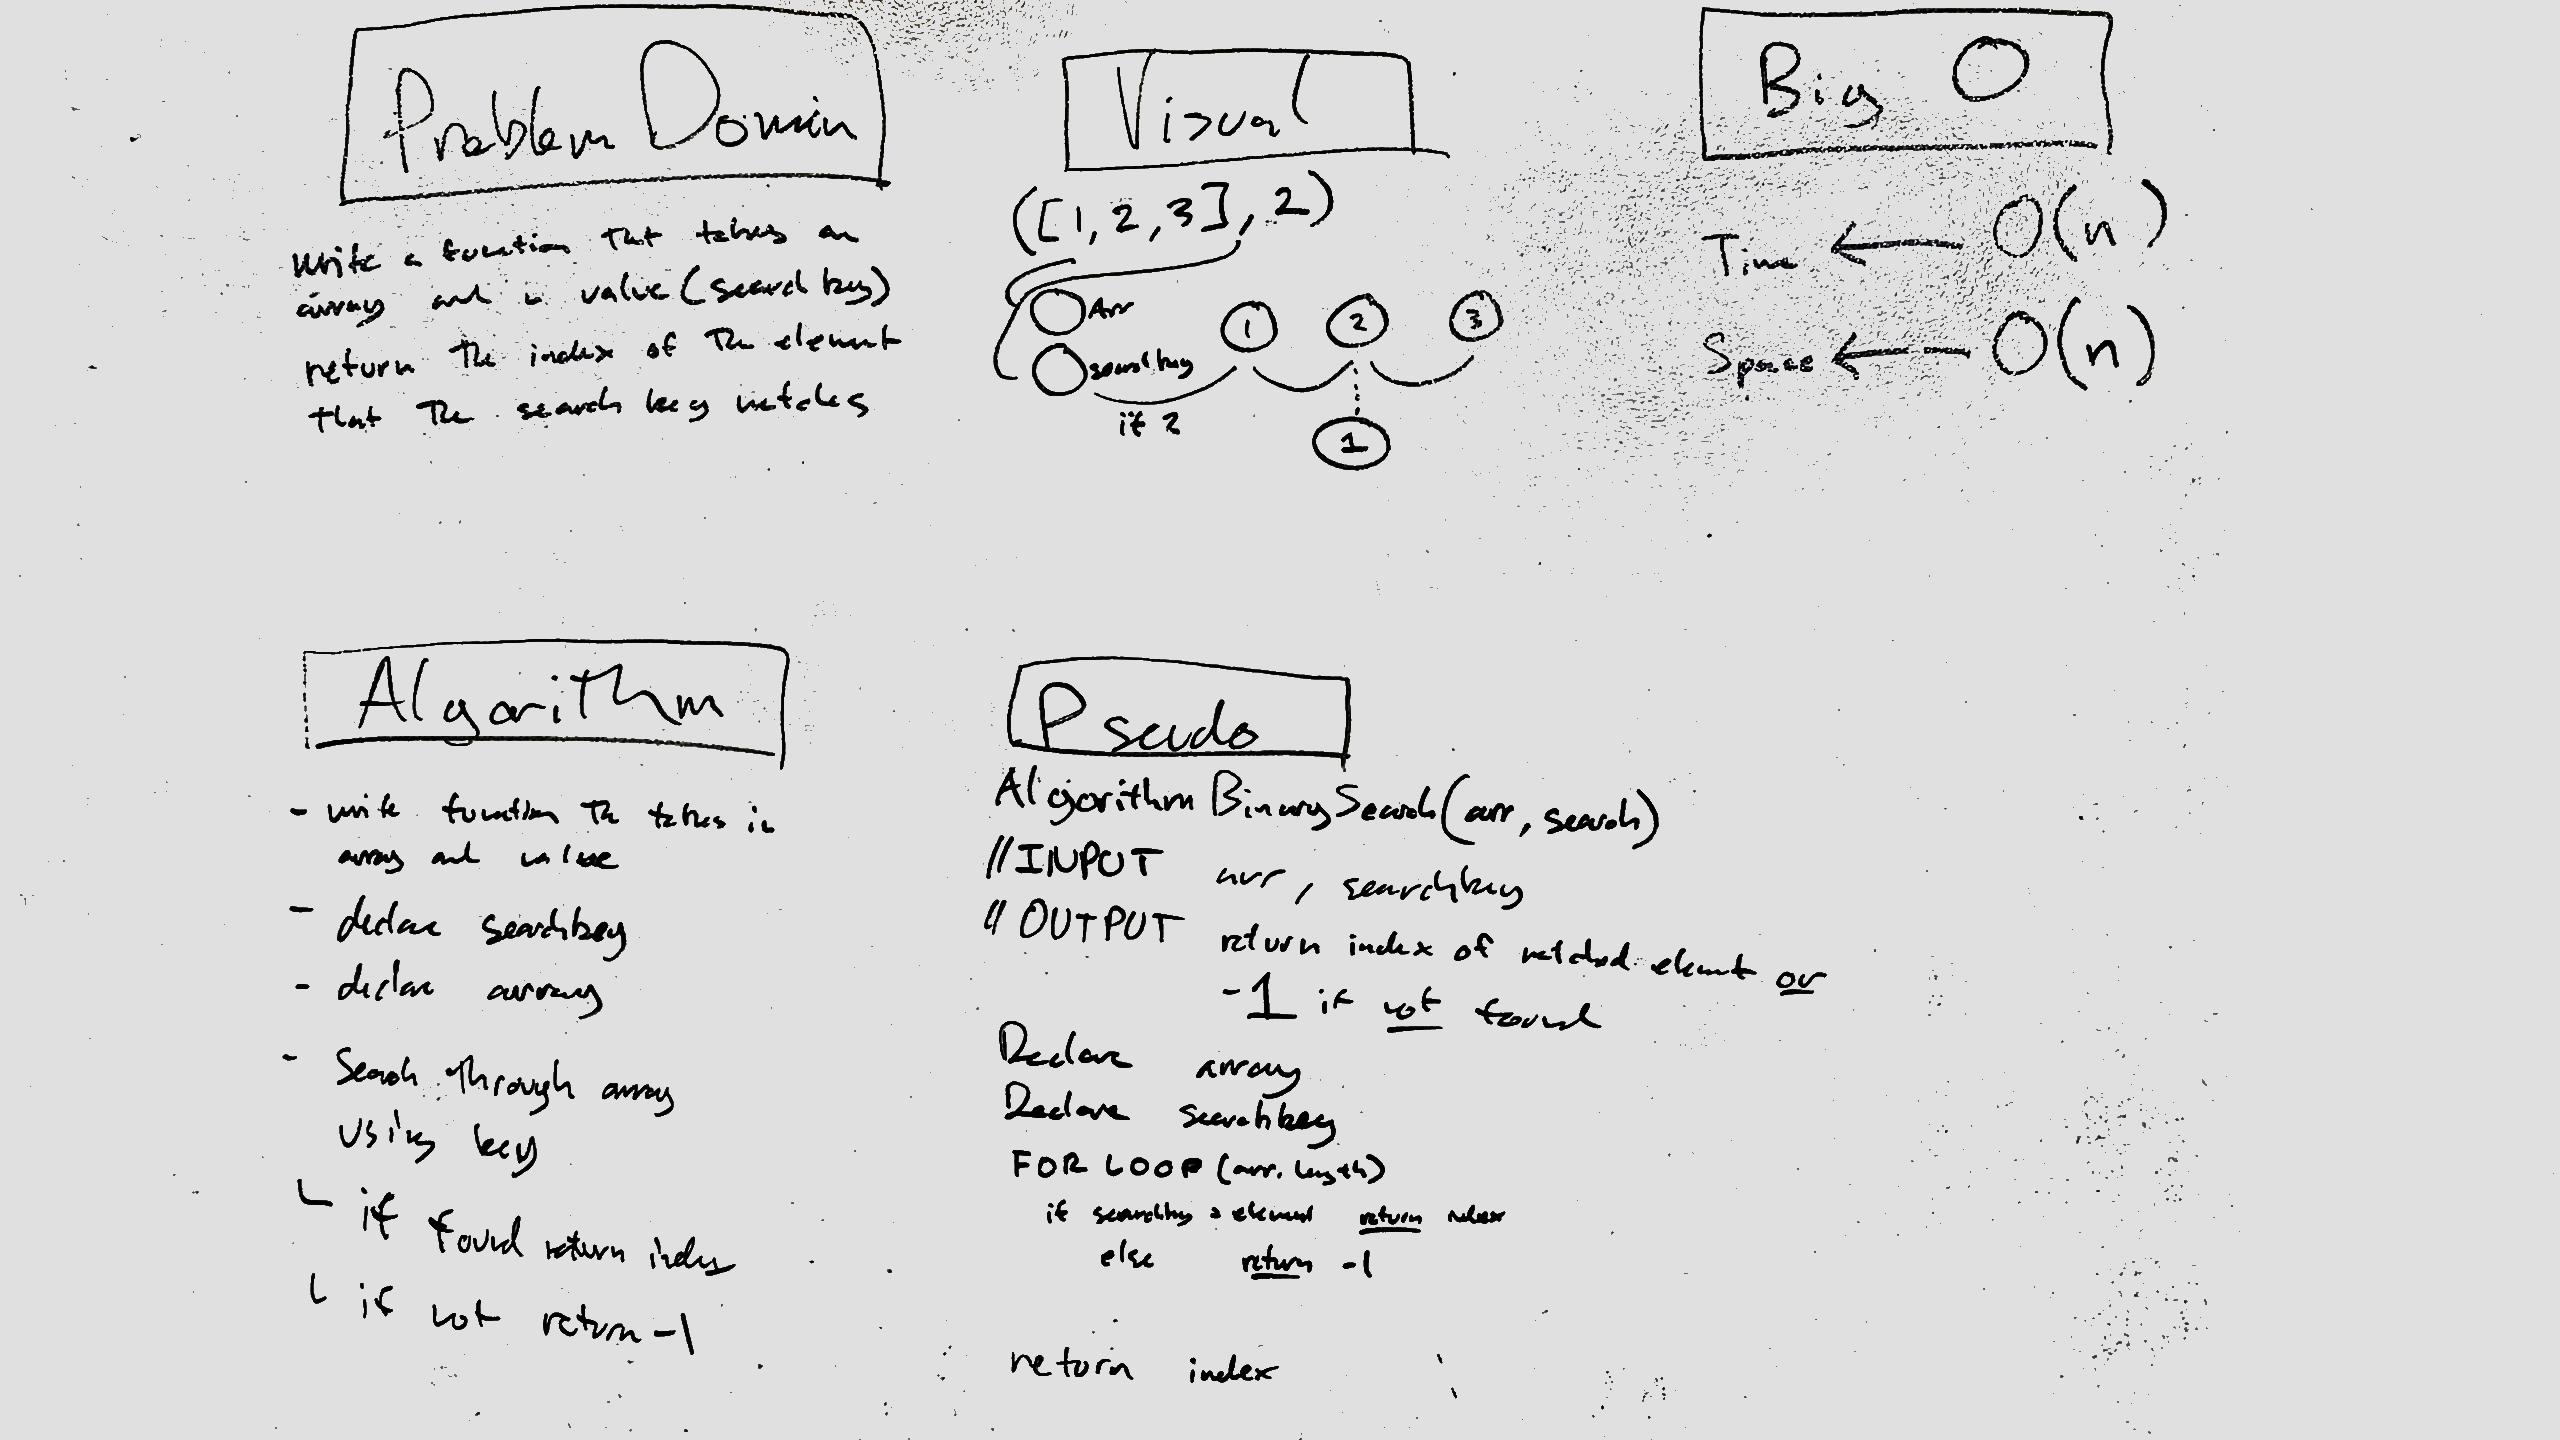 Problem Domain
Write a function that takes an
array and a value (search key)
return the index of the element
that the search key matches
Visual
([1, 2, 3], 2)
Arr
searchkey
1 2 3
if 2
1
Big O
Time ← O(n)
Space ← O(n)
Algorithm
- write function th takes in
array and value
- declare searchkey
- declare array
- Search through array
using key
if found return index
if not return -1
Pseudo
Algorithm BinarySearch(arr, search)
//INPUT arr, searchkey
//OUTPUT return index of matched element or
-1 if not found
Declare array
Declare searchkey
FOR LOOP (arr.length)
if searchkey = element return index
else return -1
return index